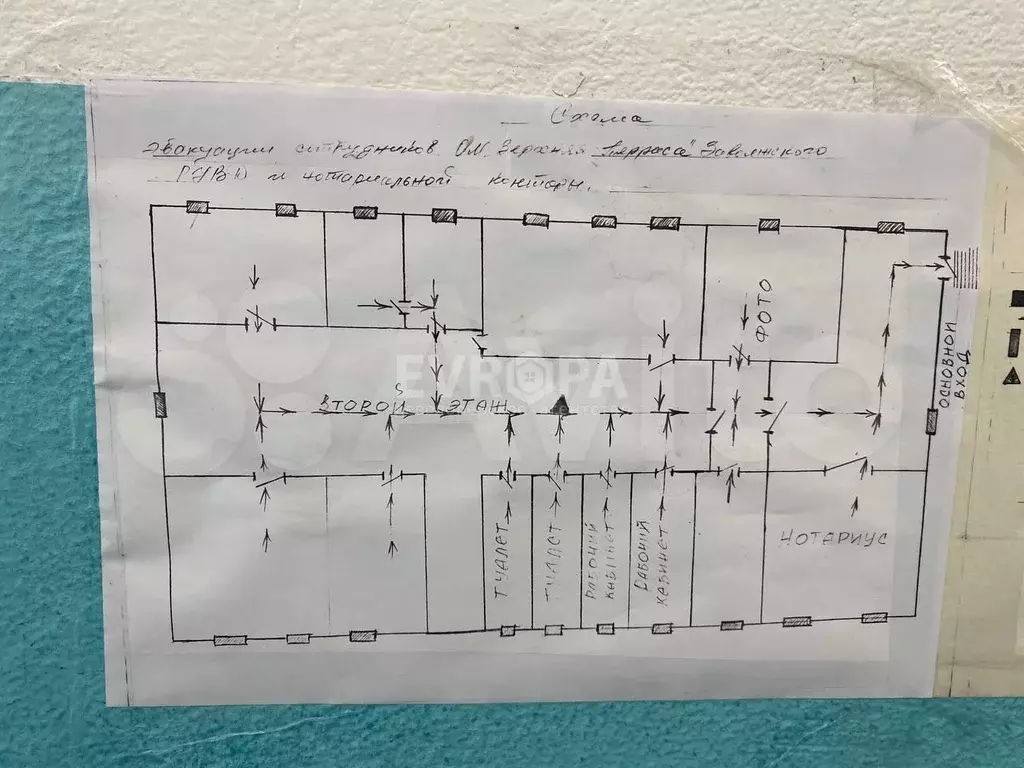 Схема
эвакуации сотрудников ОМ "Верхняя Терраса" Заволжского
РУВД и нотариальной конторы.
ФОТО
ОСНОВНОЙ
ВХОД
EVROPA
ВТОРОЙ ЭТАЖ
Avito
НОТАРИУС
ТУАЛЕТ
ТУАЛЕТ
РАБОЧИЙ
КАБИНЕТ
РАБОЧИЙ
КАБИНЕТ